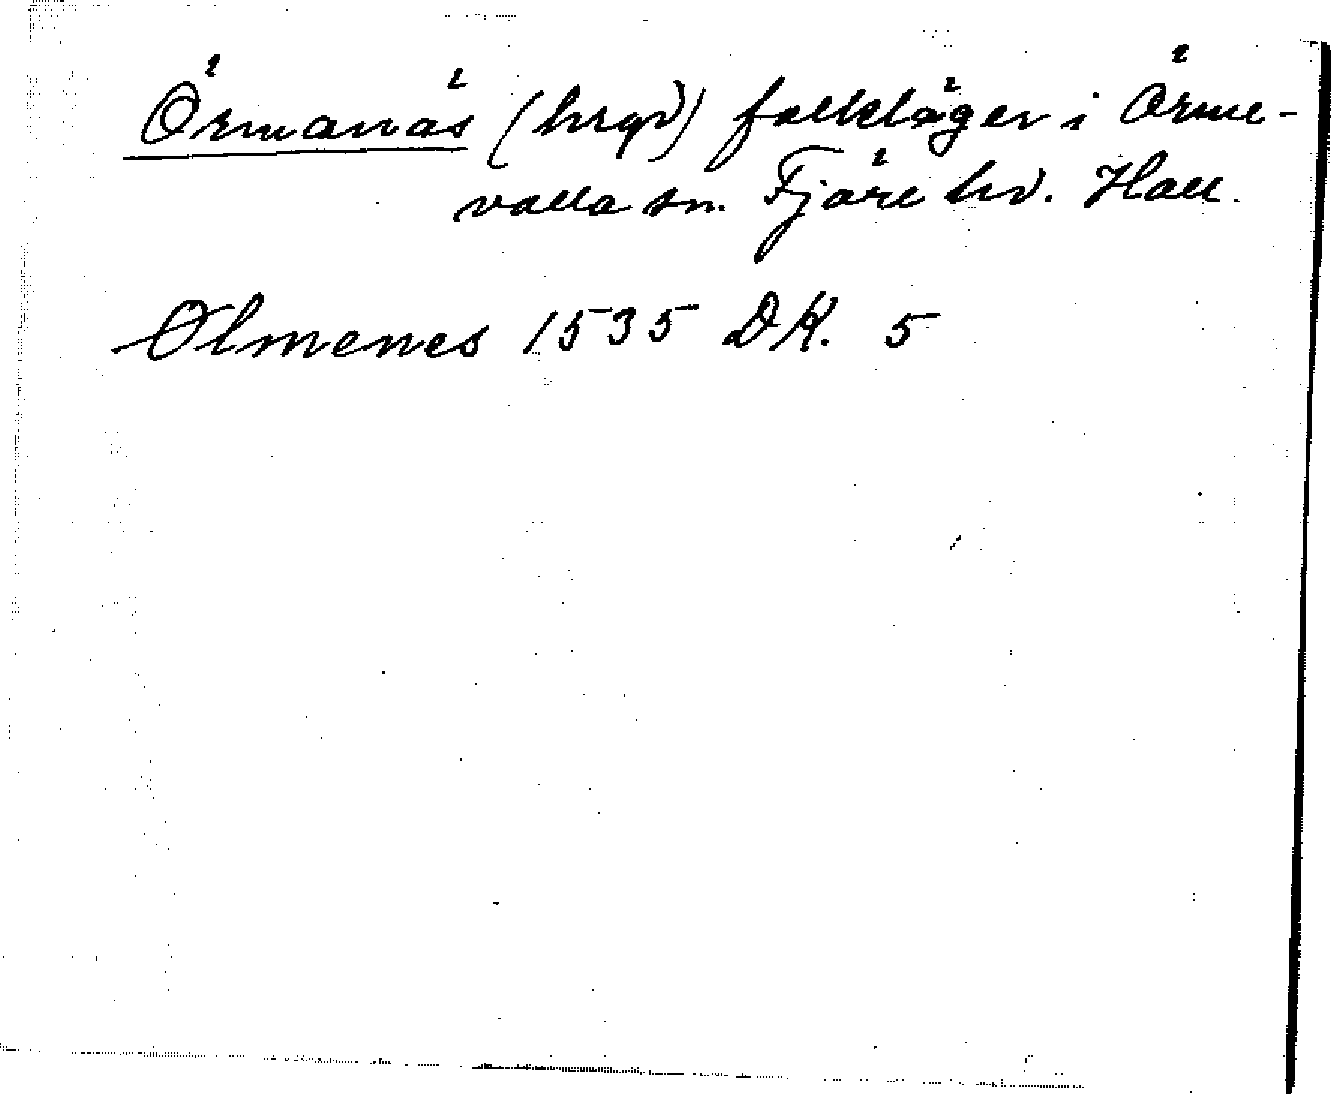 Örmanäs (hrgd) folkläger i Örme-
valla sn. Fjäre hd. Hall.
Olmenes 1535 DK. 5